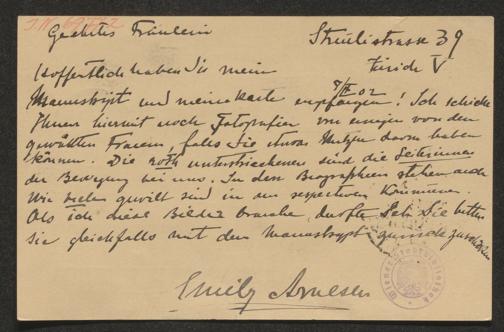 Geehrtes Fräulein
Streulistrasse 39
Zürich V
Hoffentlich haben Sie mein
Manuskript und meine Karte empfangen! Ich schicke
Ihnen hiermit noch Fotografien von einigen von den
gewählten Frauen, falls Sie etwas Nutzen davon haben
können. Die roth unterstrichenen sind die Leiterinnen
der Bewegung bei uns. In den Biographieen stehen auch
Wie vielen gewählt sind in den respectiven Kommunen.
Als ich diese Bilder brauche, dürfte Ich Sie bitten
sie gleichfalls mit dem Manuskript zurückzuschicken
Emily Arnesen